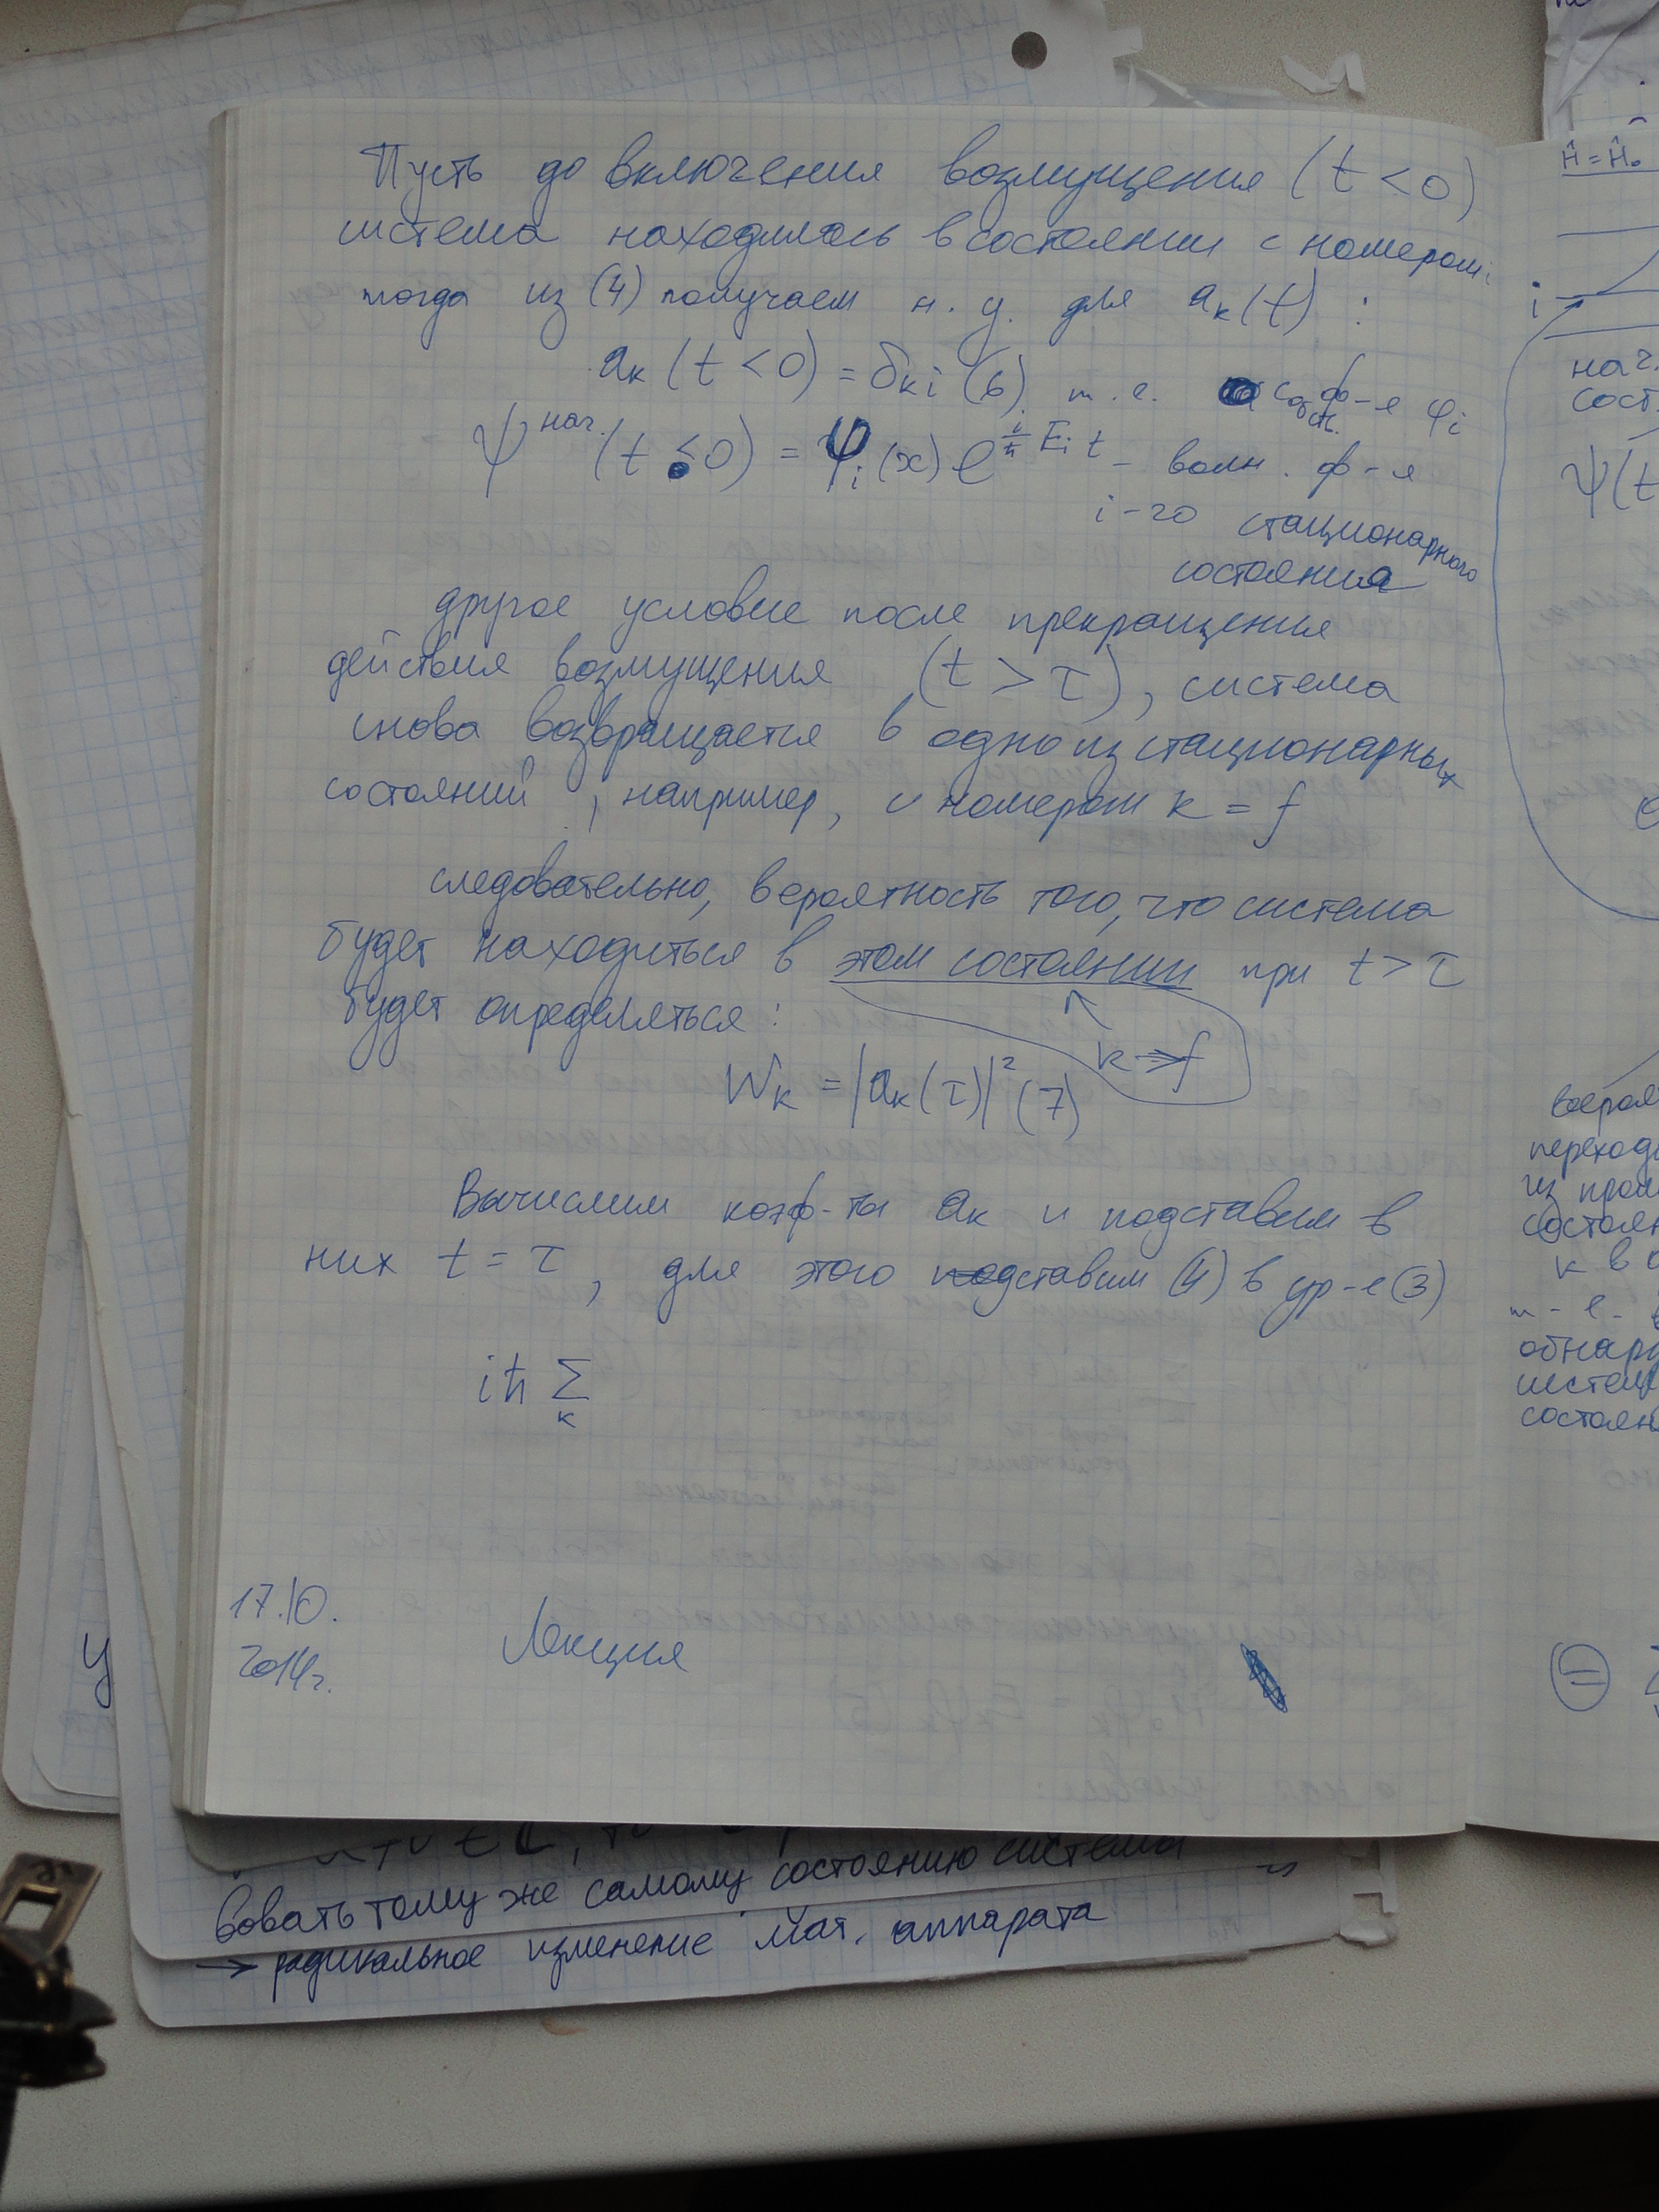 Пусть до включения возмущения (t < 0)
система находилась в состоянии с номером i
тогда из (4) получаем н. у. для aₖ(t) :
aₖ (t < 0) = δₖᵢ (6) т. е. соб. ф-я φᵢ
ств.
ψ нач. (t ≤ 0) = φᵢ(x) e^{i/ħ Eᵢ t} – волн. ф-я
i-го стационарного
состояния
другое условие после прекращения
действия возмущения (t > τ), система
снова возвращается в одно из стационарных
состояний, например, с номером k = f
следовательно, вероятность того, что система
будет находиться в этом состоянии при t > τ
будет определяться:
k ⇒ f
Wₖ = |aₖ(τ)|² (7)
Вычислим коэф-ты aₖ и подставим в
них t = τ, для этого подставим (4) в ур-е (3)
iħ Σ
k
17.10.
2014г.
Лекция
Ĥ = Ĥ₀
i
нач.
сост.
ψ(t
переход
из
состоян
k в
т - е.
обнар
систем
состоян
=
у
вовать тому же самому состоянию системы
→ радикальное изменение мат. аппарата